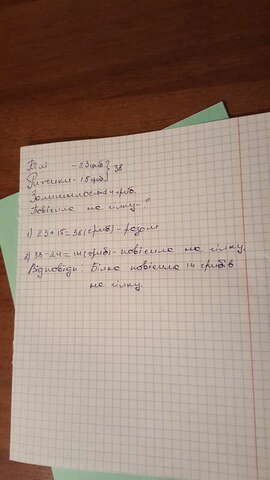 Білі - 23 гриба } 38
Рижики - 15 гриб.
Залишилося - 24 гриб.
Повісила на гілку - ?
1) 23 + 15 = 38 (грибів) - разом
2) 38 - 24 = 14 (грибів) - повісила на гілку.
Відповідь: Білка повісила 14 грибів
на гілку.